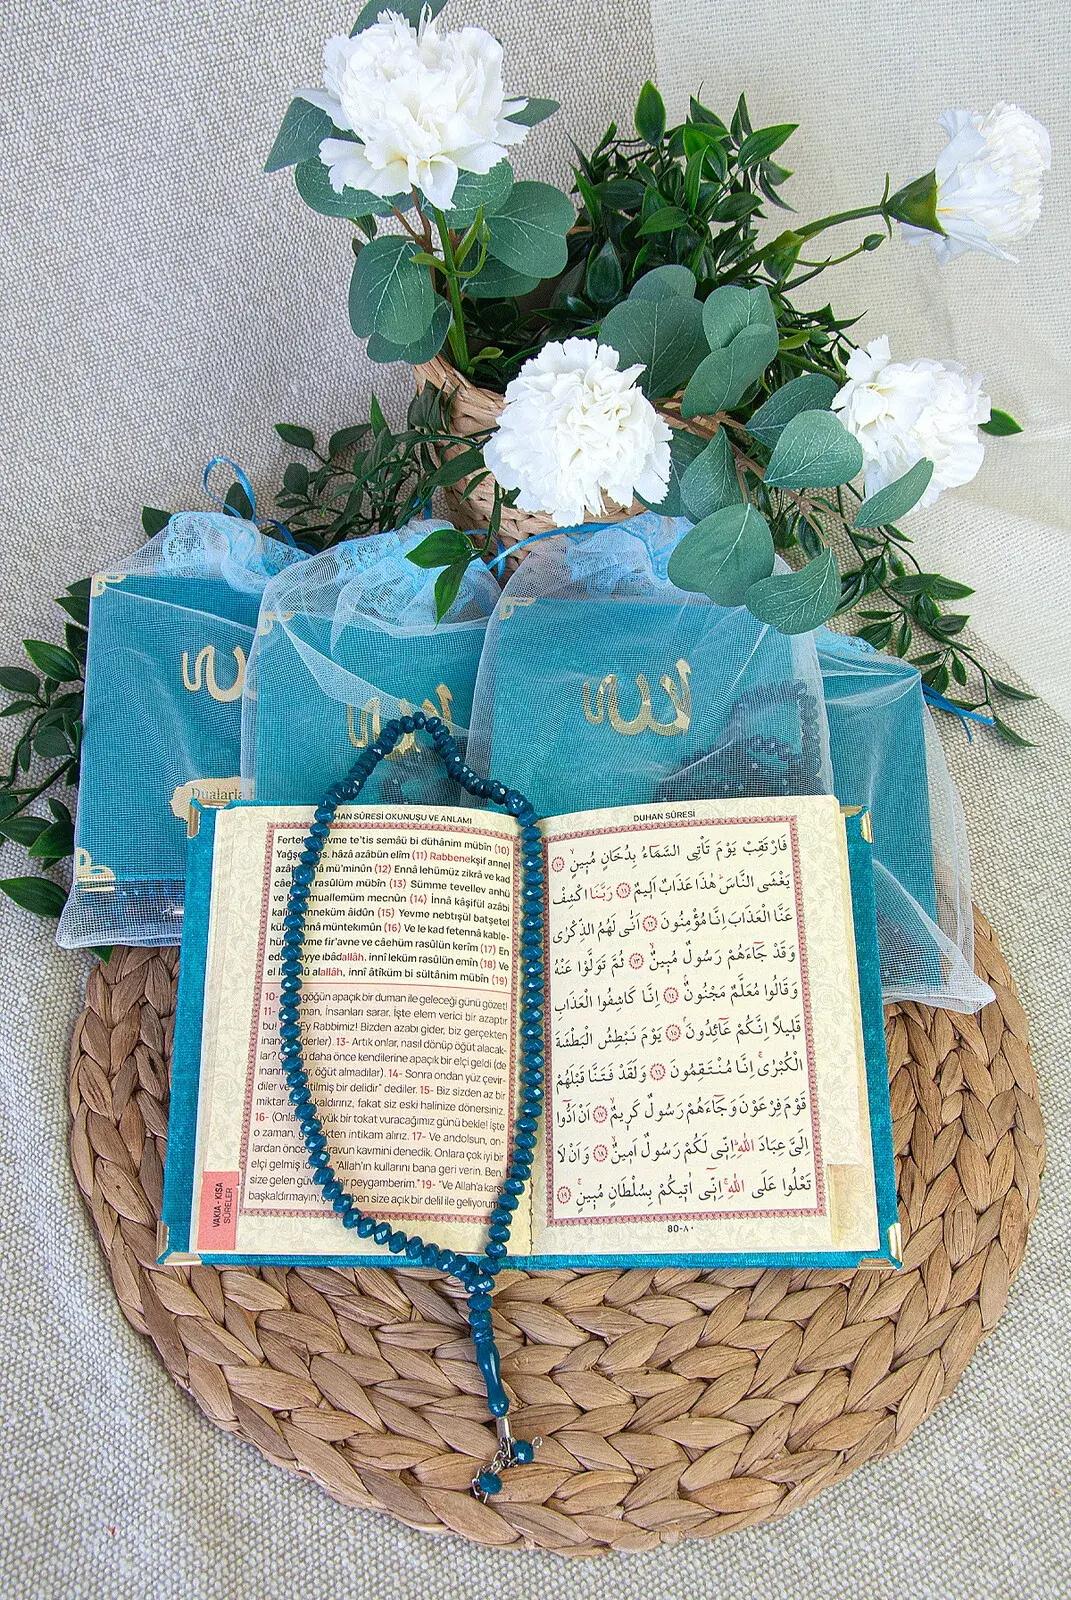 Dualarla
HAN SÛRESİ OKUNUŞU VE ANLAMI
vme te'tis semâü bi dühânim mübîn (10)
s. hâzâ azâbün elîm (11) Rabbenekşif annel
mü'minûn (12) Ennâ lehümüz zikrâ ve kad
rasûlüm mübîn (13) Sümme tevellev anhü
muallemüm mecnûn (14) İnnâ kâşifül azâbi
inneküm âidûn (15) Yevme nebtışül batşetel
innâ müntekımûn (16) Ve le kad fetennâ kable-
vme fir'avne ve câehüm rasûlün kerîm (17) En
eyye ibâdallâh, innî leküm rasûlün emîn (18) Ve
alallâh, innî âtîküm bi sültânim mübîn (19)
10- göğün apaçık bir duman ile geleceği günü gözet!
11- man, insanları sarar. İşte elem verici bir azaptır
bu! "Ey Rabbimiz! Bizden azabı gider, biz gerçekten
derler). 13- Artık onlar, nasıl dönüp öğüt alacak-
lar? daha önce kendilerine apaçık bir elçi geldi (de
öğüt almadılar). 14- Sonra ondan yüz çevir-
diler ve tilmiş bir delidir" dediler. 15- Biz sizden az bir
miktar kaldırırız, fakat siz eski halinize dönersiniz.
16- (Onla büyük bir tokat vuracağımız günü bekle! İşte
o zaman, gerçekten intikam alırız. 17- Ve andolsun, on-
lardan önce ravun kavmini denedik. Onlara çok iyi bir
elçi gelmiş "Allah'ın kullarını bana geri verin. Ben,
size gelen bir peygamberim." 19- "Ve Allah'a karşı
başkaldırmayın; ben size açık bir delil ile geliyorum
VAKIA - KISA
SÛRELER
DUHAN SÛRESİ
فَارْتَقِبْ يَوْمَ تَأْتِى السَّمَٓاءُ بِدُخَانٍ مُب۪ينٍۙ ﴿١٠﴾
يَغْشَى النَّاسَۜ هٰذَا عَذَابٌ اَل۪يمٌ ﴿١١﴾ رَبَّنَا اكْشِفْ
عَنَّا الْعَذَابَ اِنَّا مُؤْمِنُونَ ﴿١٢﴾ اَنّٰى لَهُمُ الذِّكْرٰى
وَقَدْ جَٓاءَهُمْ رَسُولٌ مُب۪ينٌۙ ﴿١٣﴾ ثُمَّ تَوَلَّوْا عَنْهُ
وَقَالُوا مُعَلَّمٌ مَجْنُونٌۢ ﴿١٤﴾ اِنَّا كَاشِفُوا الْعَذَابِ
قَل۪يلًا اِنَّكُمْ عَٓائِدُونَۢ ﴿١٥﴾ يَوْمَ نَبْطِشُ الْبَطْشَةَ
الْكُبْرٰىۚ اِنَّا مُنْتَقِمُونَ ﴿١٦﴾ وَلَقَدْ فَتَنَّا قَبْلَهُمْ
قَوْمَ فِرْعَوْنَ وَجَٓاءَهُمْ رَسُولٌ كَر۪يمٌۙ ﴿١٧﴾ اَنْ اَدُّٓوا
اِلَيَّ عِبَادَ اللّٰهِۜ اِنّ۪ى لَكُمْ رَسُولٌ اَم۪ينٌۙ ﴿١٨﴾ وَاَنْ لَا
تَعْلُوا عَلَى اللّٰهِۚ اِنّ۪ٓى اٰت۪يكُمْ بِسُلْطَانٍ مُب۪ينٍۚ ﴿١٩﴾
80-٨٠